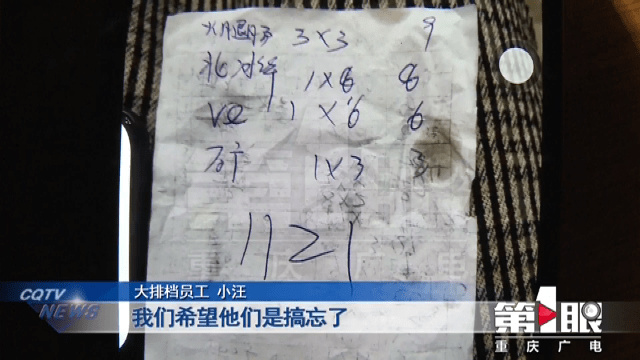 火腿肠 3×3 9
北冰洋 1×6 6
VC 1×6 6
矿 1×3 3
1121
CQTV
NEWS
大排档员工 小汪
我们希望他们是搞忘了
第1眼
重庆广电